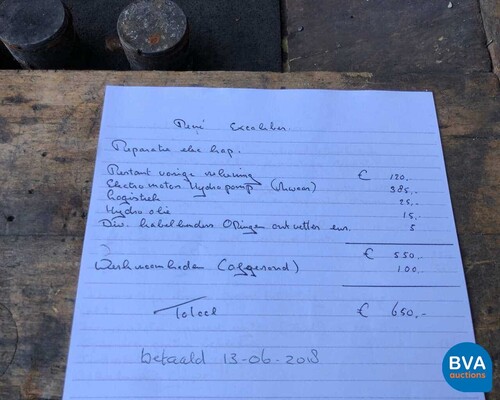 René Excaliber.
Reparatie elec hap.
Restant vorige rekening € 120,-
Electro motor Hydro pomp (zwaar) 385,-
Logistiek 25,-
Hydro olie 15,-
Div. kabelbinders O Ringen ontvetter enz. 5
€ 550,-
Werkzaamheden (afgerond) 100,-
Totaal € 650,-
betaald 13-06-2018
BVA
auctions